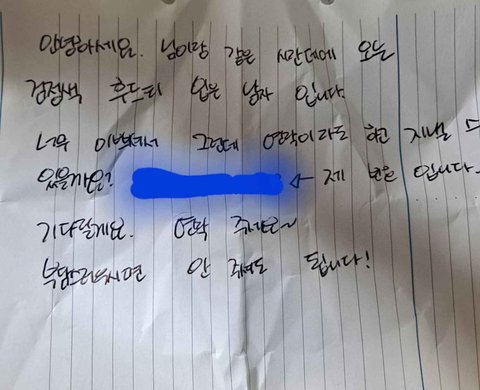 안녕하세요. 님이랑 같은 시간대에 오는
검정색 후드티 입은 남자 입니다.
너무 이쁘셔서 그런데 연락이라도 하고 지낼 수
있을까요? ← 제 번호 입니다~
기다릴게요. 연락 주세요~
부담스러우시면 안 줘도 됩니다!